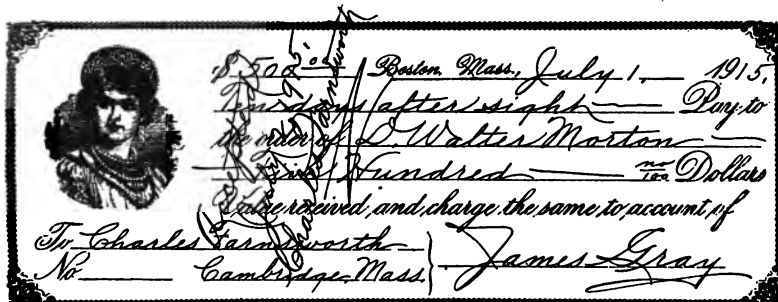 $500.00 Boston, Mass., July 1 1915.
Ten days after sight Pay to
the order of D. Walter Morton
Five Hundred no/100 Dollars
Value received and charge the same to account of
To Charles Farnsworth
No Cambridge Mass James Gray
Charles Farnsworth